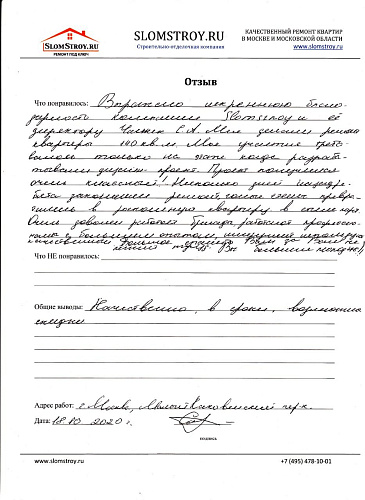 SLOMSTROY.RU
РЕМОНТ ПОД КЛЮЧ
SLOMSTROY.RU
Строительно-отделочная компания
КАЧЕСТВЕННЫЙ РЕМОНТ КВАРТИР
В МОСКВЕ И МОСКОВСКОЙ ОБЛАСТИ
www.slomstroy.ru
Отзыв
Что понравилось: Выражаю искреннюю благо-
дарность компании Slomstroy и её
директору С.А. Мне делали ремонт
квартиры 100 кв.м. Мое участие требо-
валось только на этапе когда разраба-
тывали дизайн-проект. Проект получился
очень классный! Несколько дней назад ре-
бята закончили ремонт, голые стены превра-
тились в роскошную квартиру в соч.
Очень довольна работой! Бригада работает профессио-
нально с большим опытом,
Что НЕ понравилось:
Общие выводы: Качественно, в сроки, возможны
скидки
Адрес работ: г. Москва, Малый Каковинский пер.
Дата: 18.10 2020 г.
подпись
www.slomstroy.ru
+7 (495) 478-10-01